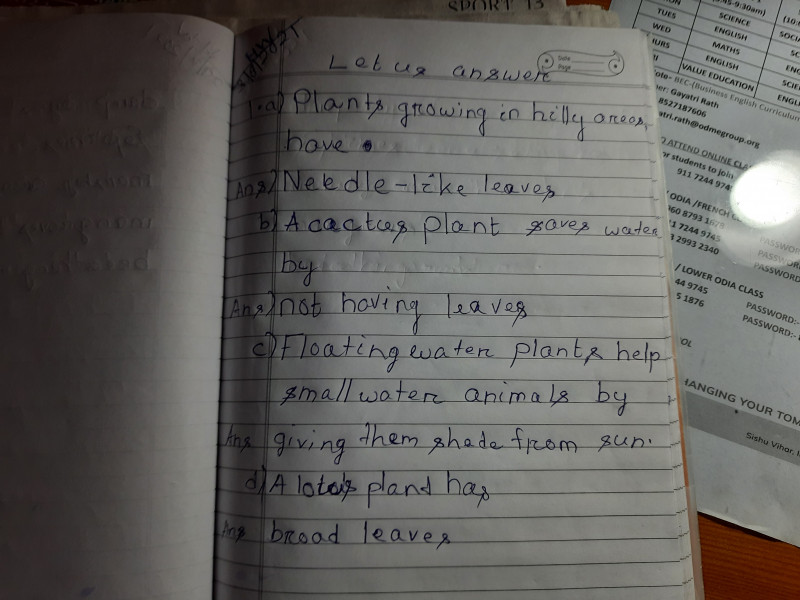 SPORT 13
Let us answer
Date
Page
1.a) Plants growing in hilly areas,
have
Ans) Needle-like leaves
b) A cactus plant saves water
by
Ans) not having leaves
c) Floating water plants help
small water animals by
Ans giving them shade from sun.
d) A lotus plant has
Ans broad leaves
45-9:30am)
TUES SCIENCE
WED ENGLISH SOCI
MATHS
ENGLISH
VALUE EDUCATION
ote- BEC-(Business English Curriculum
er: Gayatri Rath
8527187606
atri.rath@odmegroup.org
2 ATTEND ONLINE CLA
or students to join
911 7244 974
ODIA /FRENCH
1 7244 9745
3 2993 2340
PASSWORD
/ LOWER ODIA CLASS
44 9745 PASSWORD:-
5 1876 PASSWORD:-
HANGING YOUR TOM
Sishu Vihar,